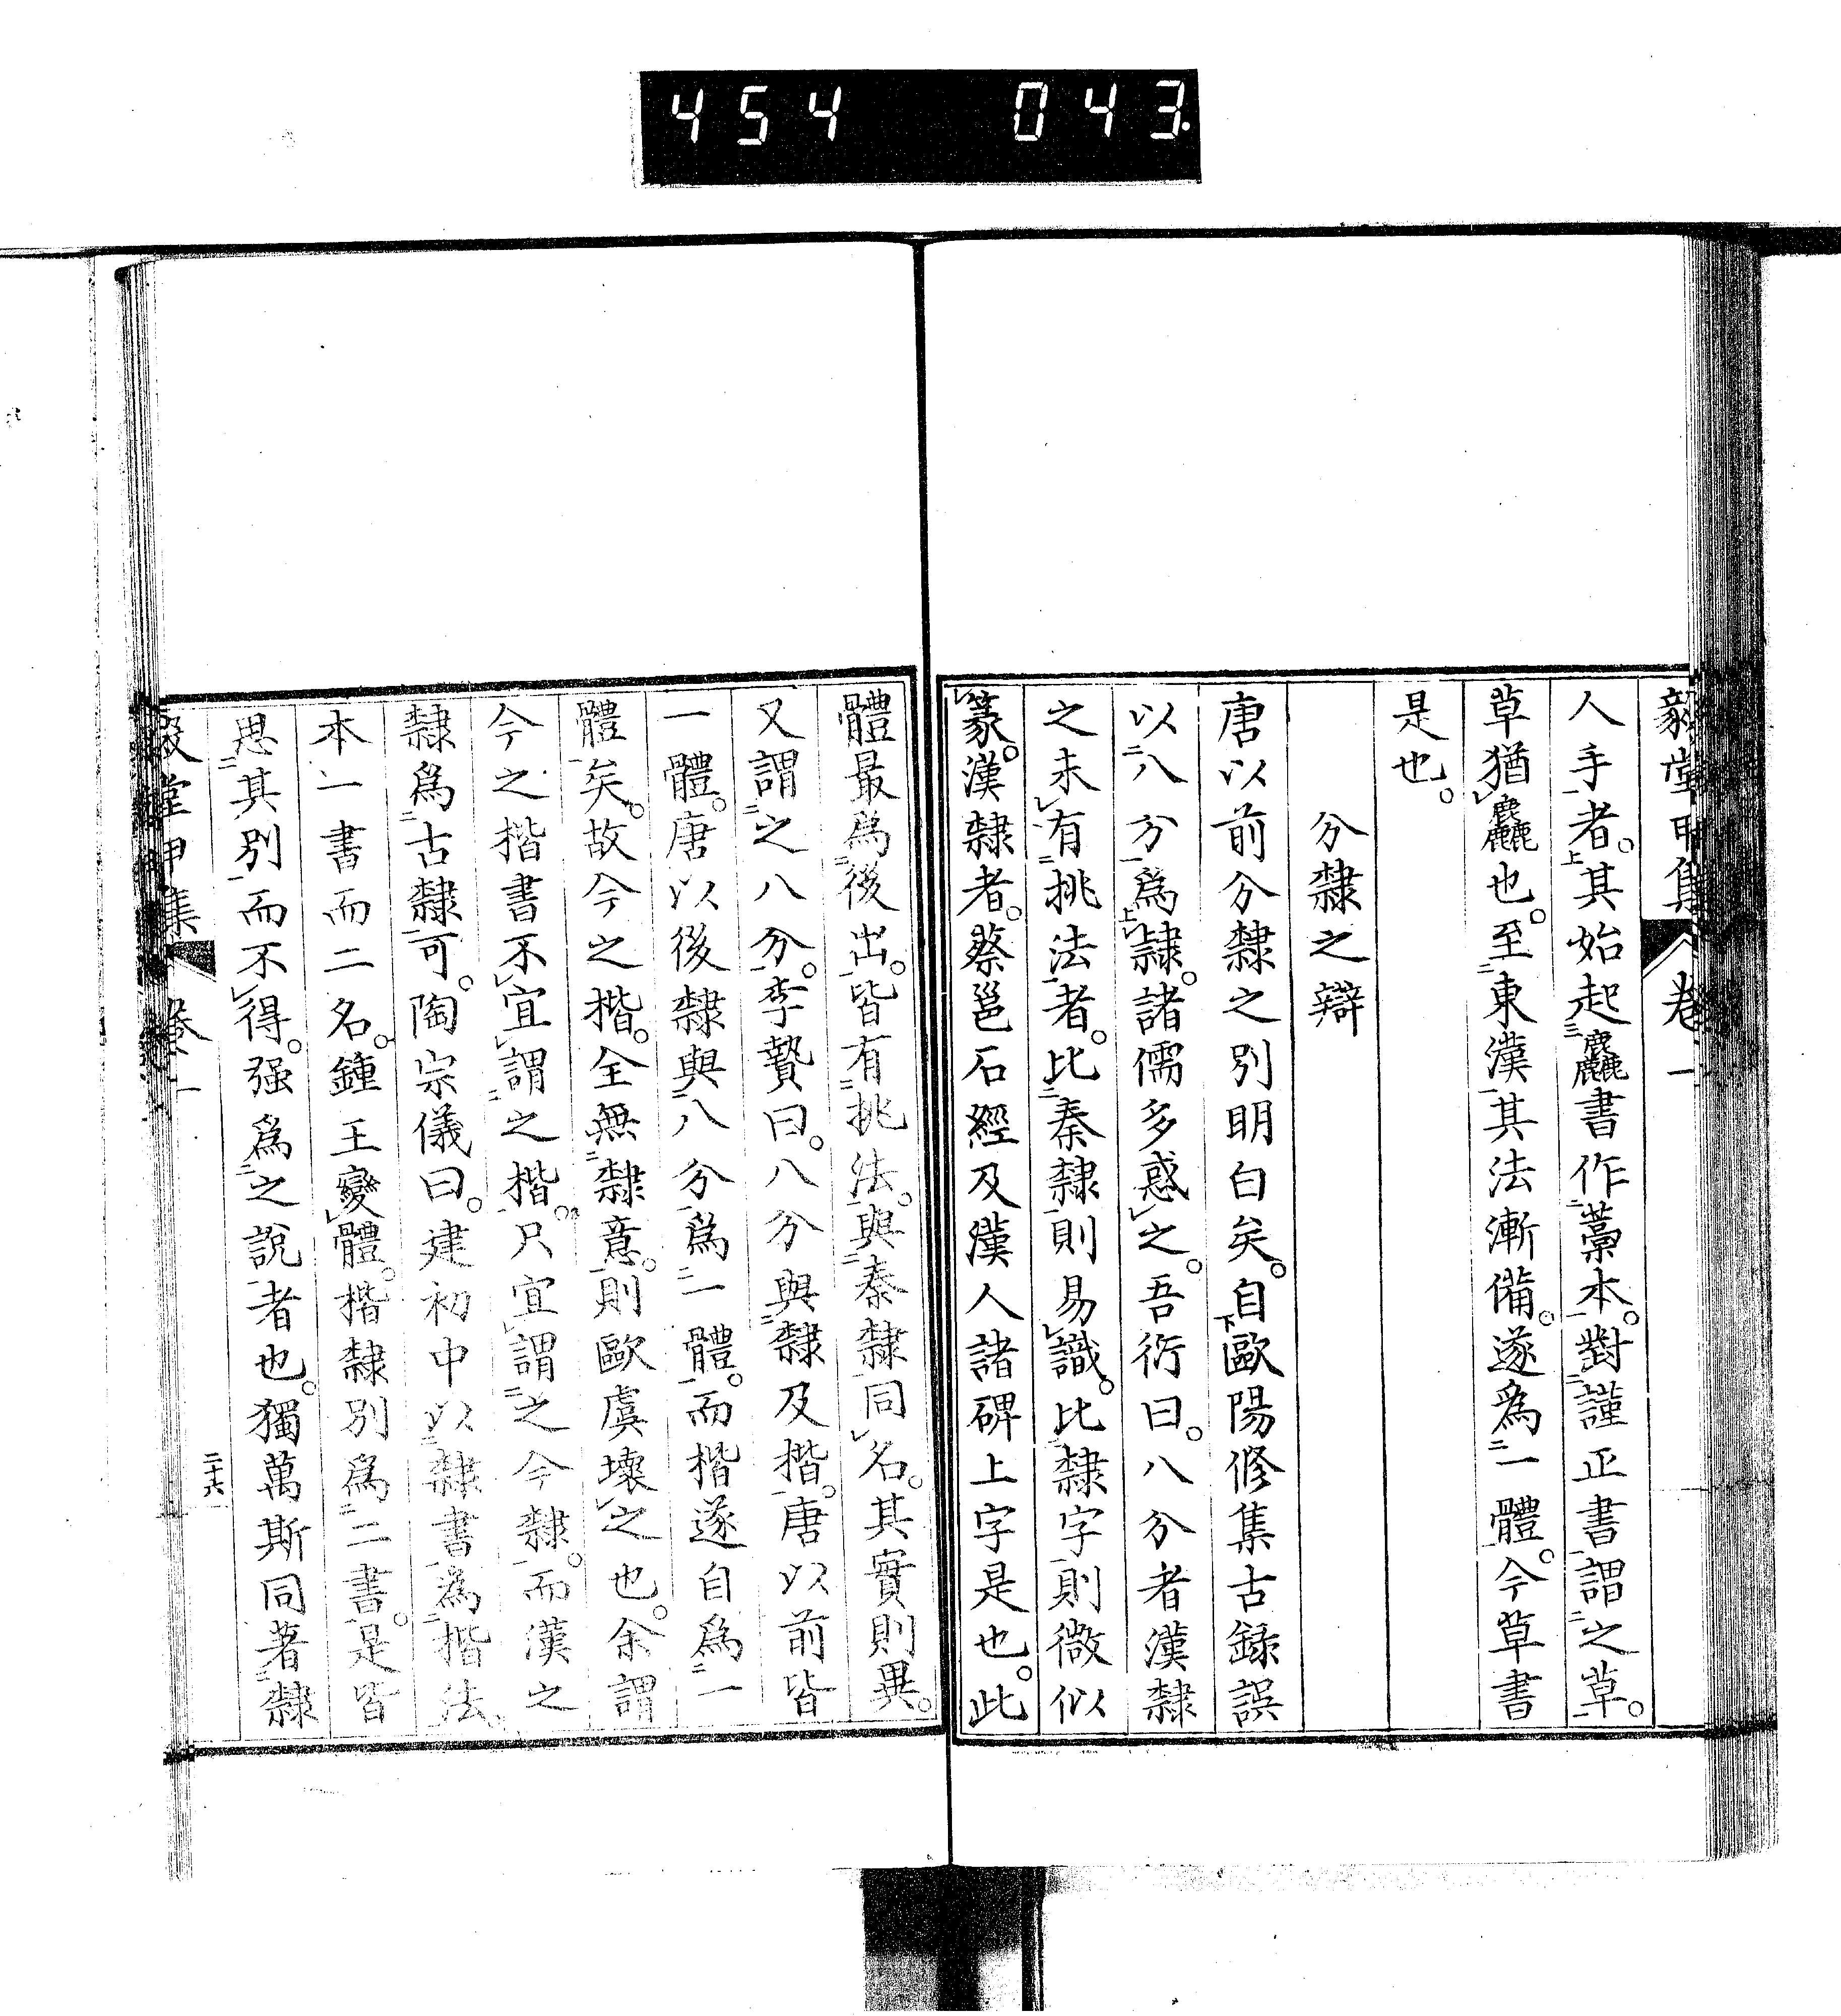 454 043.
毅堂甲集 卷一
人手者。其始起麤書作藁本。對謹正書謂之草。
草猶麤也。至東漢其法漸備。遂爲一體。今草書
是也。
分隸之辯
唐以前分隸之別明白矣。自歐陽修集古錄誤
以八分爲隸。諸儒多惑之。吾衍曰。八分者漢隸
之未有挑法者。比秦隸則易識。比隸字則微似
篆。漢隸者。蔡邕石經及漢人諸碑上字是也。此
體最爲後出。皆有挑法。與秦隸同名。其實則異。
又謂之八分。李贄曰。八分與隸及楷。唐以前皆
一體。唐以後隸與八分爲一體。而楷遂自爲一
體矣。故今之楷。全無隸意。則歐虞壞之也。余謂
今之楷書不宜謂之楷。只宜謂之今隸。而漢之
隸爲古隸可。陶宗儀曰。建初中以隸書爲楷法。
本一書而二名。鍾王變體。楷隸別爲二書。是皆
思其別而不得。强爲之說者也。獨萬斯同著隸
毅堂甲集 卷一 二十六